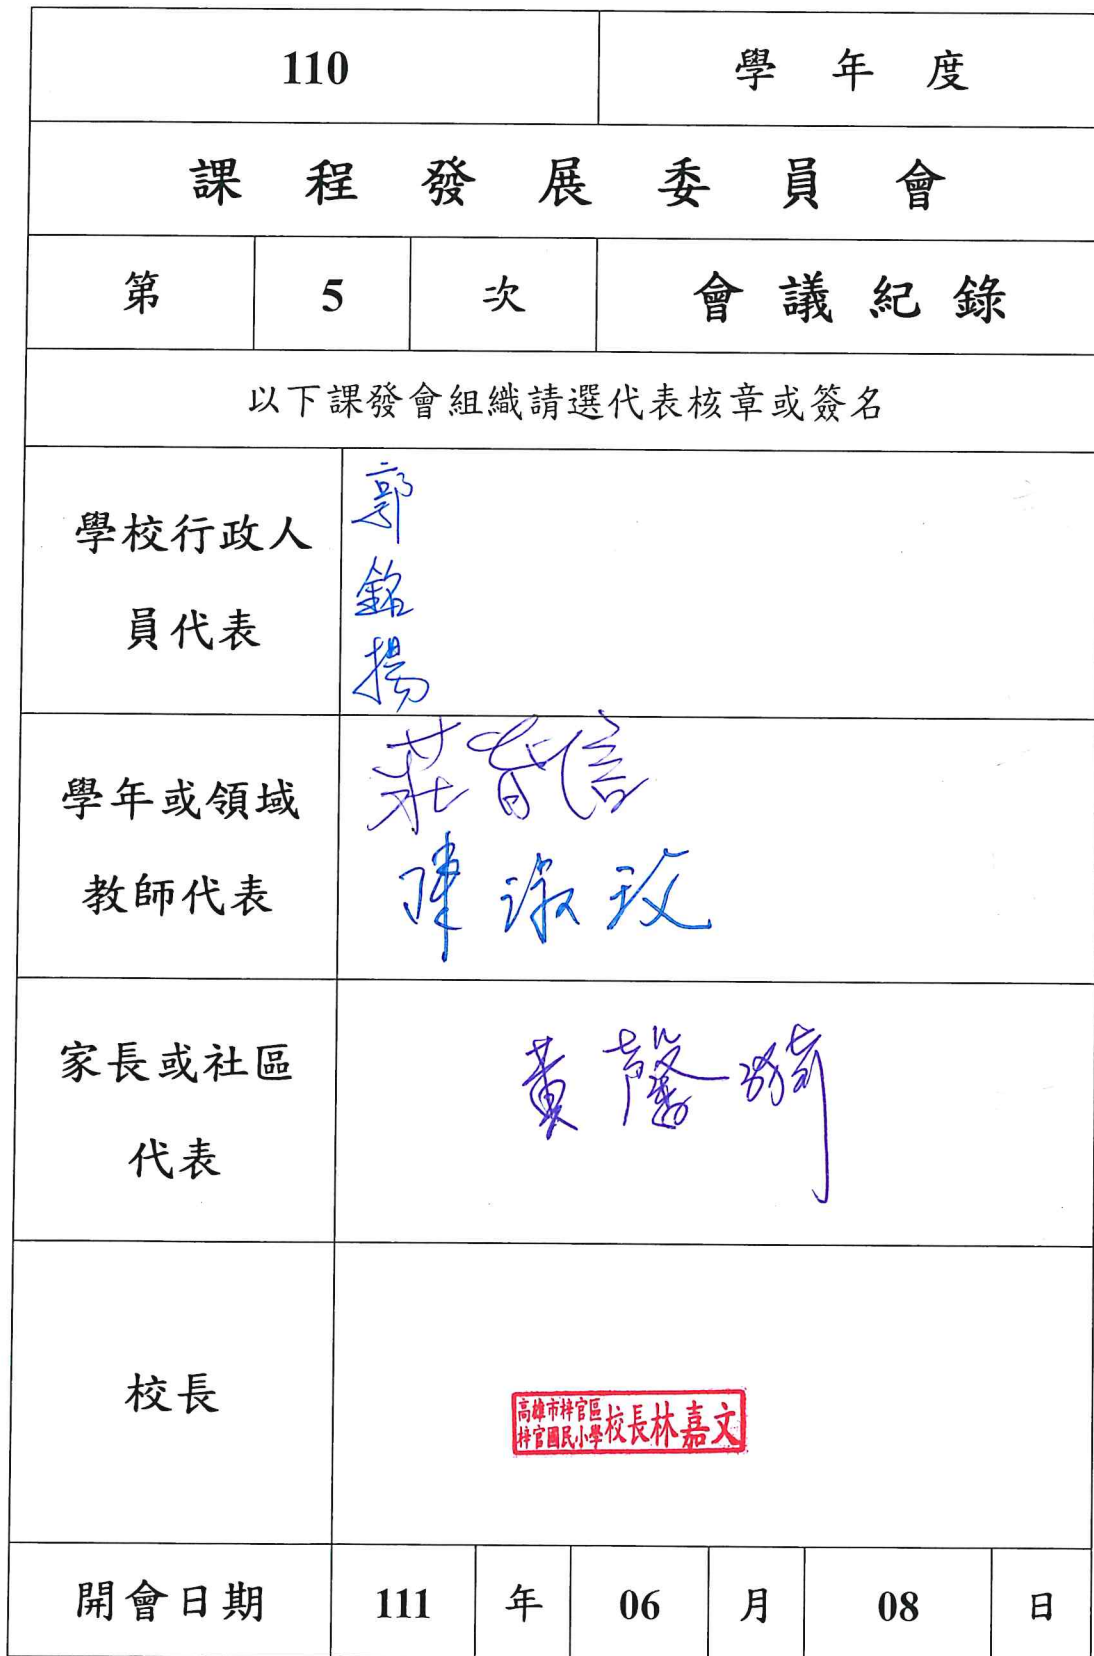 110 學年度
課程發展委員會
第 5 次 會議紀錄
以下課發會組織請選代表核章或簽名
學校行政人
員代表
郭
銘
揚
學年或領域
教師代表
莊育信
陳淑玫
家長或社區
代表
黃馨
校長
高雄市梓官區
梓官國民小學
校長林嘉文
開會日期 111 年 06 月 08 日